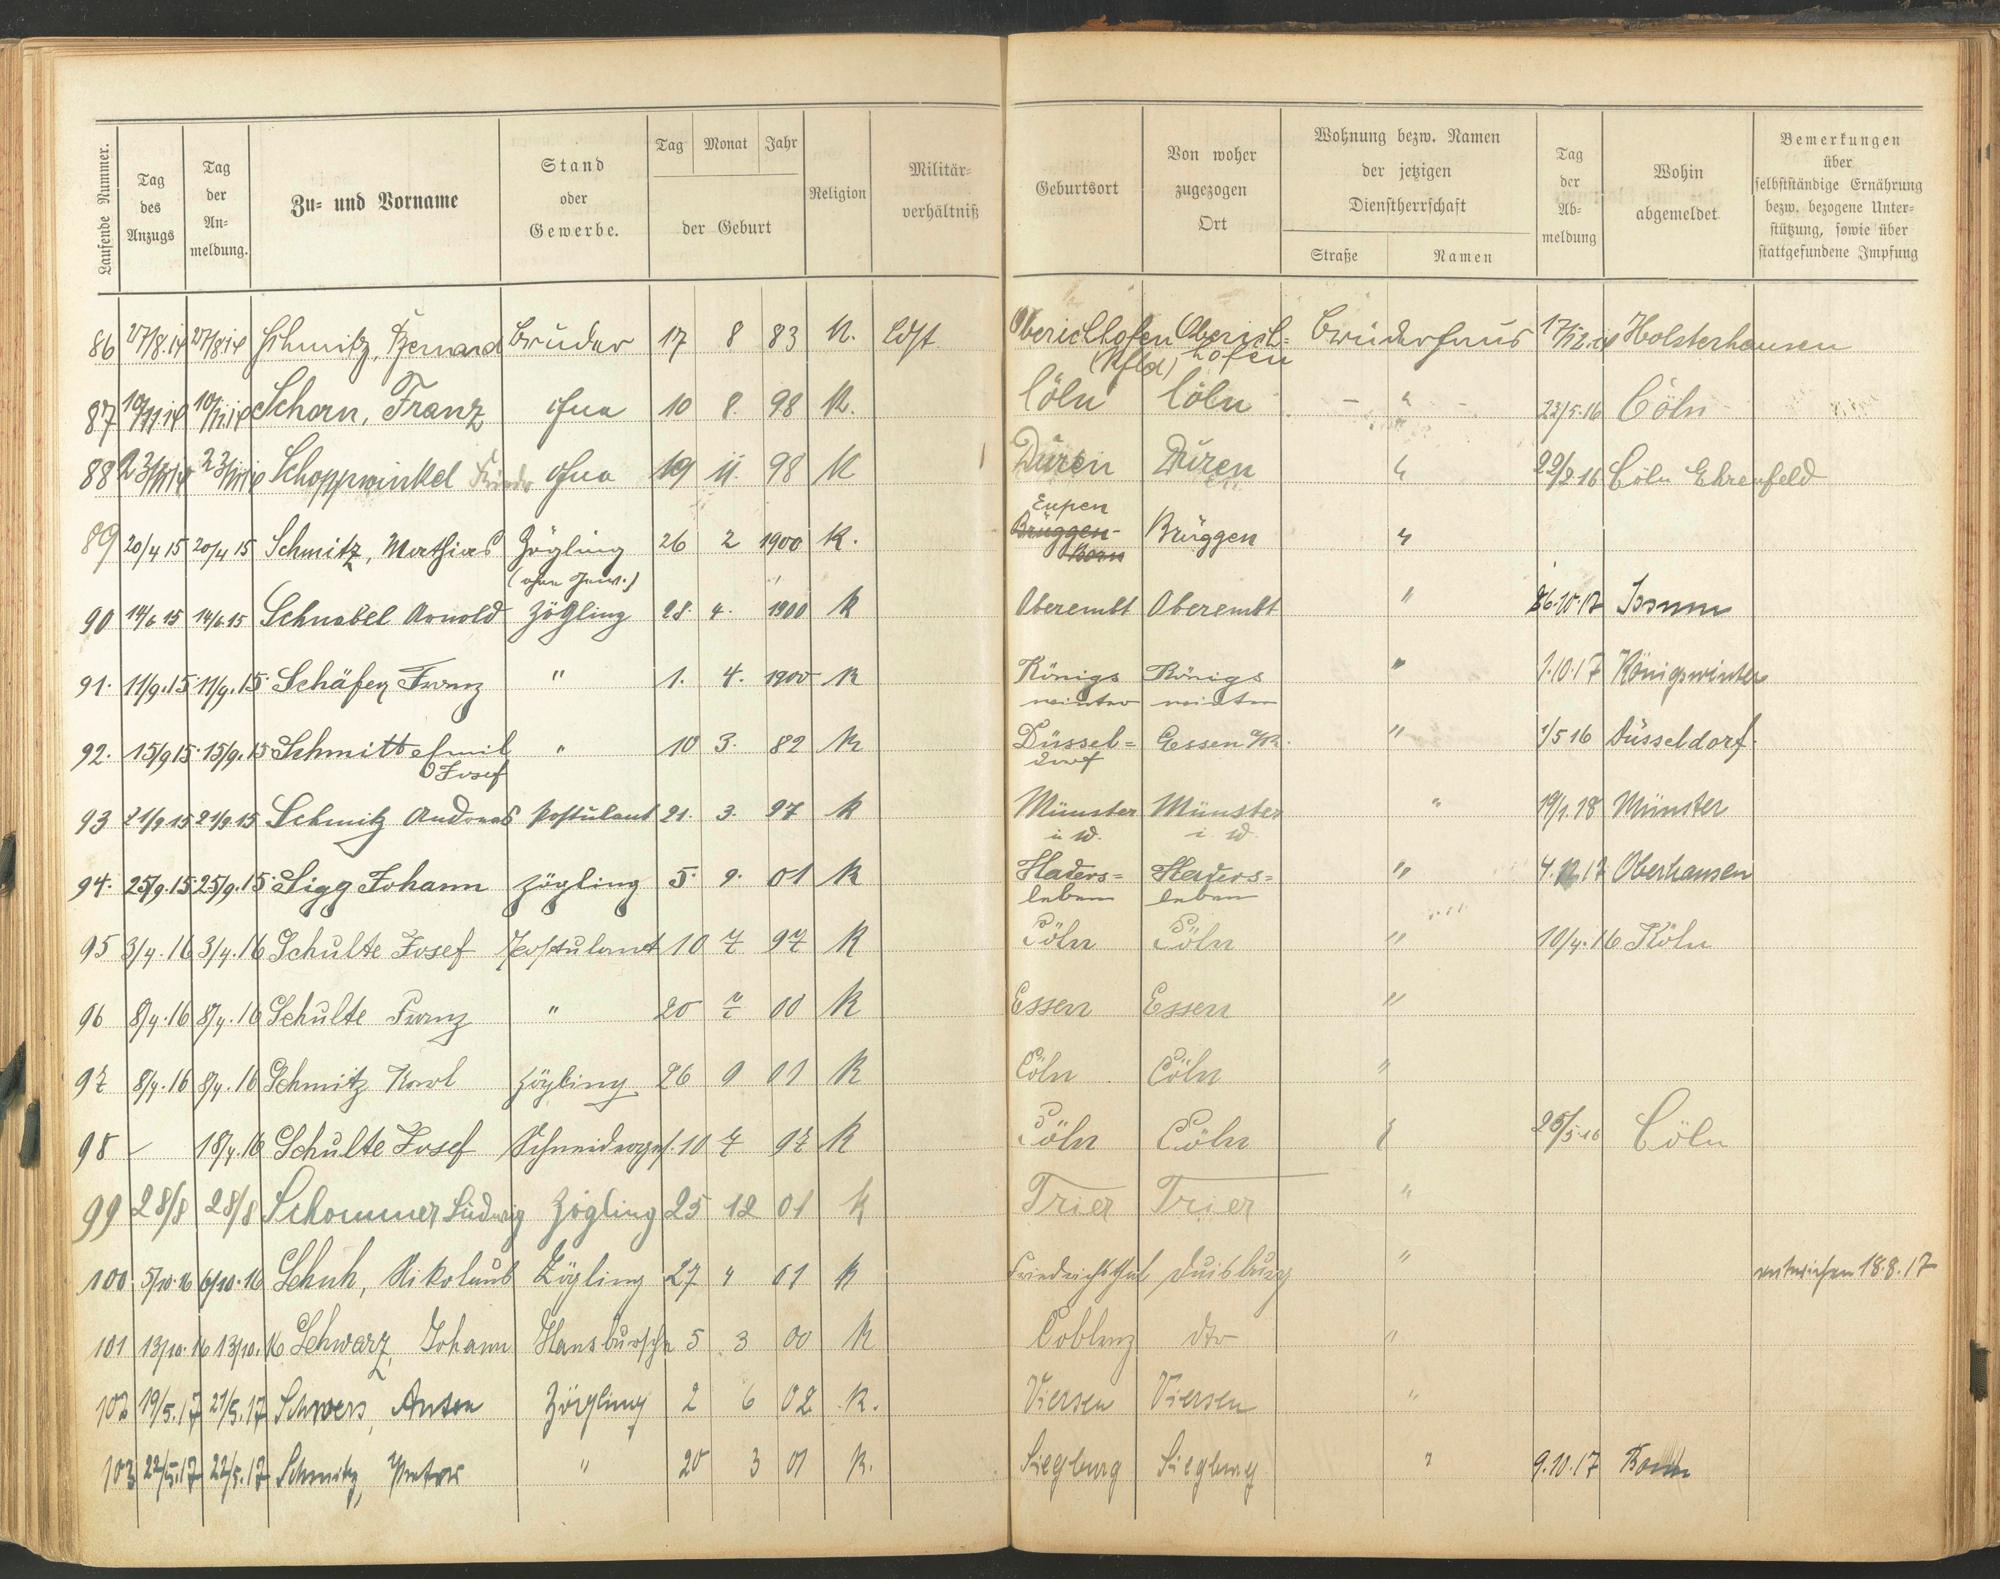 Laufende Nummer.
Tag des Anzugs
Tag der An- meldung.
Zu- und Vorname
Stand oder Gewerbe.
Tag Monat Jahr
der Geburt
Religion
Militär- verhältniß
Geburtsort
Von woher zugezogen Ort
Wohnung bezw. Namen der jetzigen Dienstherrschaft
Straße Namen
Tag der Ab- meldung
Wohin abgemeldet
Bemerkungen über selbstständige Ernährung bezw. bezogene Unter- stützung, sowie über stattgefundene Impfung
86 27/8.14 27/8 14 Schmitz, Bernard Bruder 17 8 83 K. Ldst. Oberichhofen Oberich- Brüderhaus Holsterhausen
hofen
87 Schorn, Franz ohne 10 8. 98 K. Cöln Cöln - " - 23/5.16 Cöln
88 Schoppwinkel ohne 19 11. 98 K Düren Düren " 22/2.16 Cöln Ehrenfeld
Eupen
89 20/4 15 20/4 15 Schmitz, Mathias Zögling 26 2 1900 K. Brüggen- Brüggen "
Born
(ohne Gew.)
90 14/6 15 14/6.15 Schnabel Arnold Zögling 28. 4. 1900 K Oberembt Oberembt " 26.10.17 Issum
91. 11/9.15 11/9.15 Schäfer Franz " 1. 4. 1900 K Königs Königs " 1.10.17 Königswinter
winter winter
92. 15/9 15. 15/9.15 Schmitt Emil " 10 3. 82 K Düssel= Essen a/R. " 1/5 16 Düsseldorf.
Josef dorf
93 21/9 15 21/9 15 Schmitz Andreas Postulant 21. 3. 97 K Münster Münster " 19/1.18 Münster
i W. i. W.
94. 25/9.15 25/9.15 Sigg Johann Zögling 5. 9. 01 K Haders= Haders= " 4.12.17 Oberhausen
leben leben
95 3/4.16 3/4.16 Schulte Josef Postulant 10 7 97 K Cöln Cöln " 10/4.16 Köln
96 8/4.16 8/4.16 Schulte Franz " 20 00 K Essen Essen "
97 8/4.16 8/4.16 Schmitz Karl Zögling 26 9 01 K Cöln Cöln "
98 - 18/4.16 Schulte Josef Schneiderges. 10 7 97 K Cöln Cöln 25/5.16 Cöln
99 28/8 28/8 Schommer Ludwig Zögling 25 12 01 K Trier Trier "
100. 5/10.16 6/10.16 Schuh, Nikolaus Zögling 27 4 01 K Friedrichsthal Duisburg " entwichen 18.8.17
101 13/10.16 13/10.16 Schwarz, Johann Hausbursche 5 3 00 K Coblenz dto "
102 19/5.17 21/5.17 Schwers, Anton Zögling 2 6 02 K. Viersen Viersen "
103 22/5.17 22/5.17 Schmitz, Peter " 20 3 01 K. Siegburg Siegburg " 9.10.17 Bonn